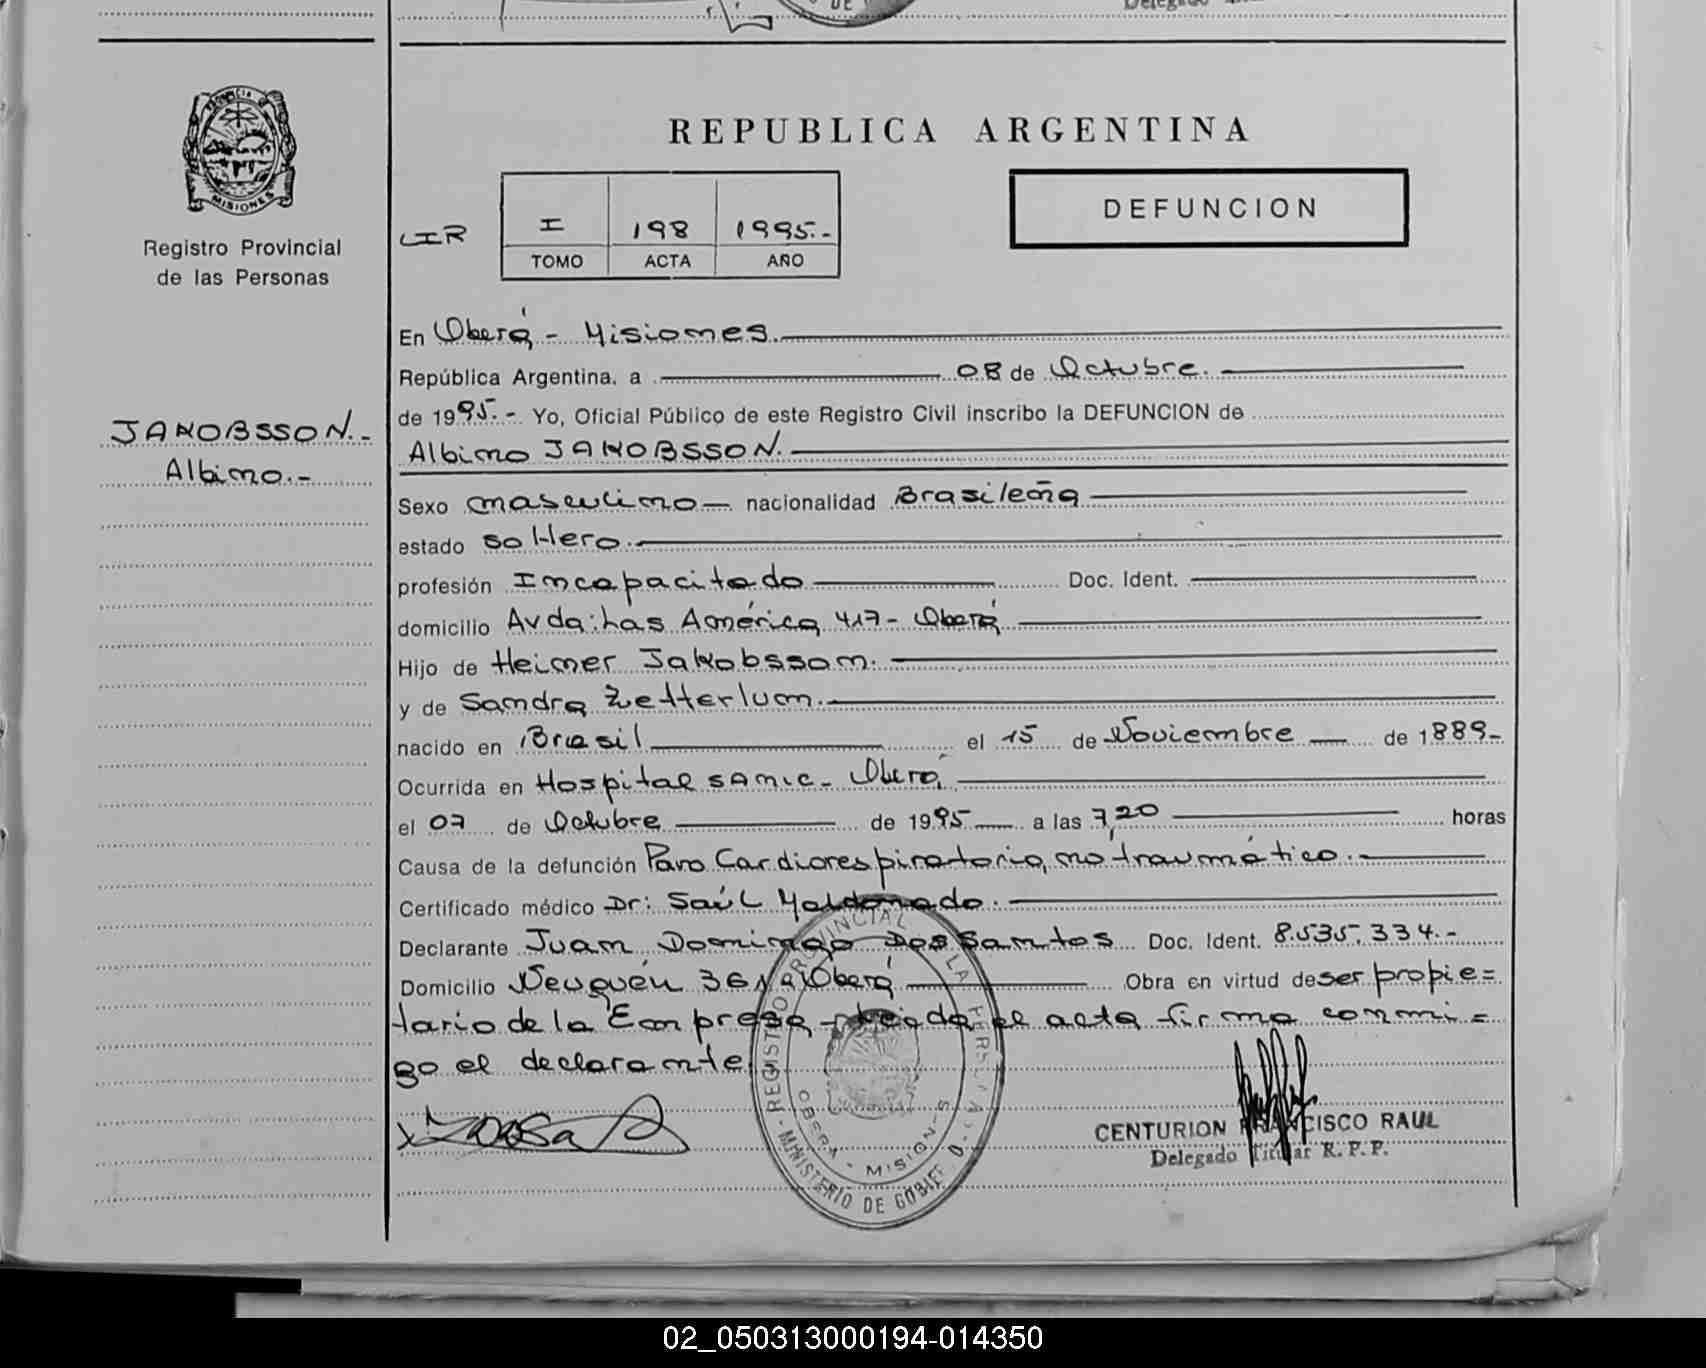 REPUBLICA ARGENTINA
PROVINCIA D
MISIONES
Registro Provincial
de las Personas
LIR
I 198 1995.-
TOMO ACTA AÑO
DEFUNCION
En Oberá - Misiones.
República Argentina, a 08 de Octubre.
de 1995.- Yo, Oficial Público de este Registro Civil inscribo la DEFUNCION de
JAKOBSSON.-
Albino.-
Albino JAKOBSSON.
Sexo masculino nacionalidad Brasileña
estado soltero.
profesión Incapacitado Doc. Ident.
domicilio Avda: Las América 417 - Oberá
Hijo de Heiner Jakobsson.
y de Sandra Zetterlun.
nacido en Brasil el 15 de Noviembre de 1889-
Ocurrida en Hospital SAMIC - Oberá
el 07 de Octubre de 1995 a las 7,20 horas
Causa de la defunción Paro Cardiorespiratorio, no traumático.
Certificado médico Dr: Saúl Maldonado.
Declarante Juan Domingo Dos Santos Doc. Ident. 8.535.334.-
Domicilio Neuquén 361 Oberá Obra en virtud de ser propie=
tario de la Empresa - Leida el acta firma conmi=
go el declarante
REGISTRO PROVINCIAL DE LAS PERSONAS
OBERA - MISIONES
MINISTERIO DE GOBIERNO
CENTURION FRANCISCO RAUL
Delegado Titular R. P. P.
02_050313000194-014350